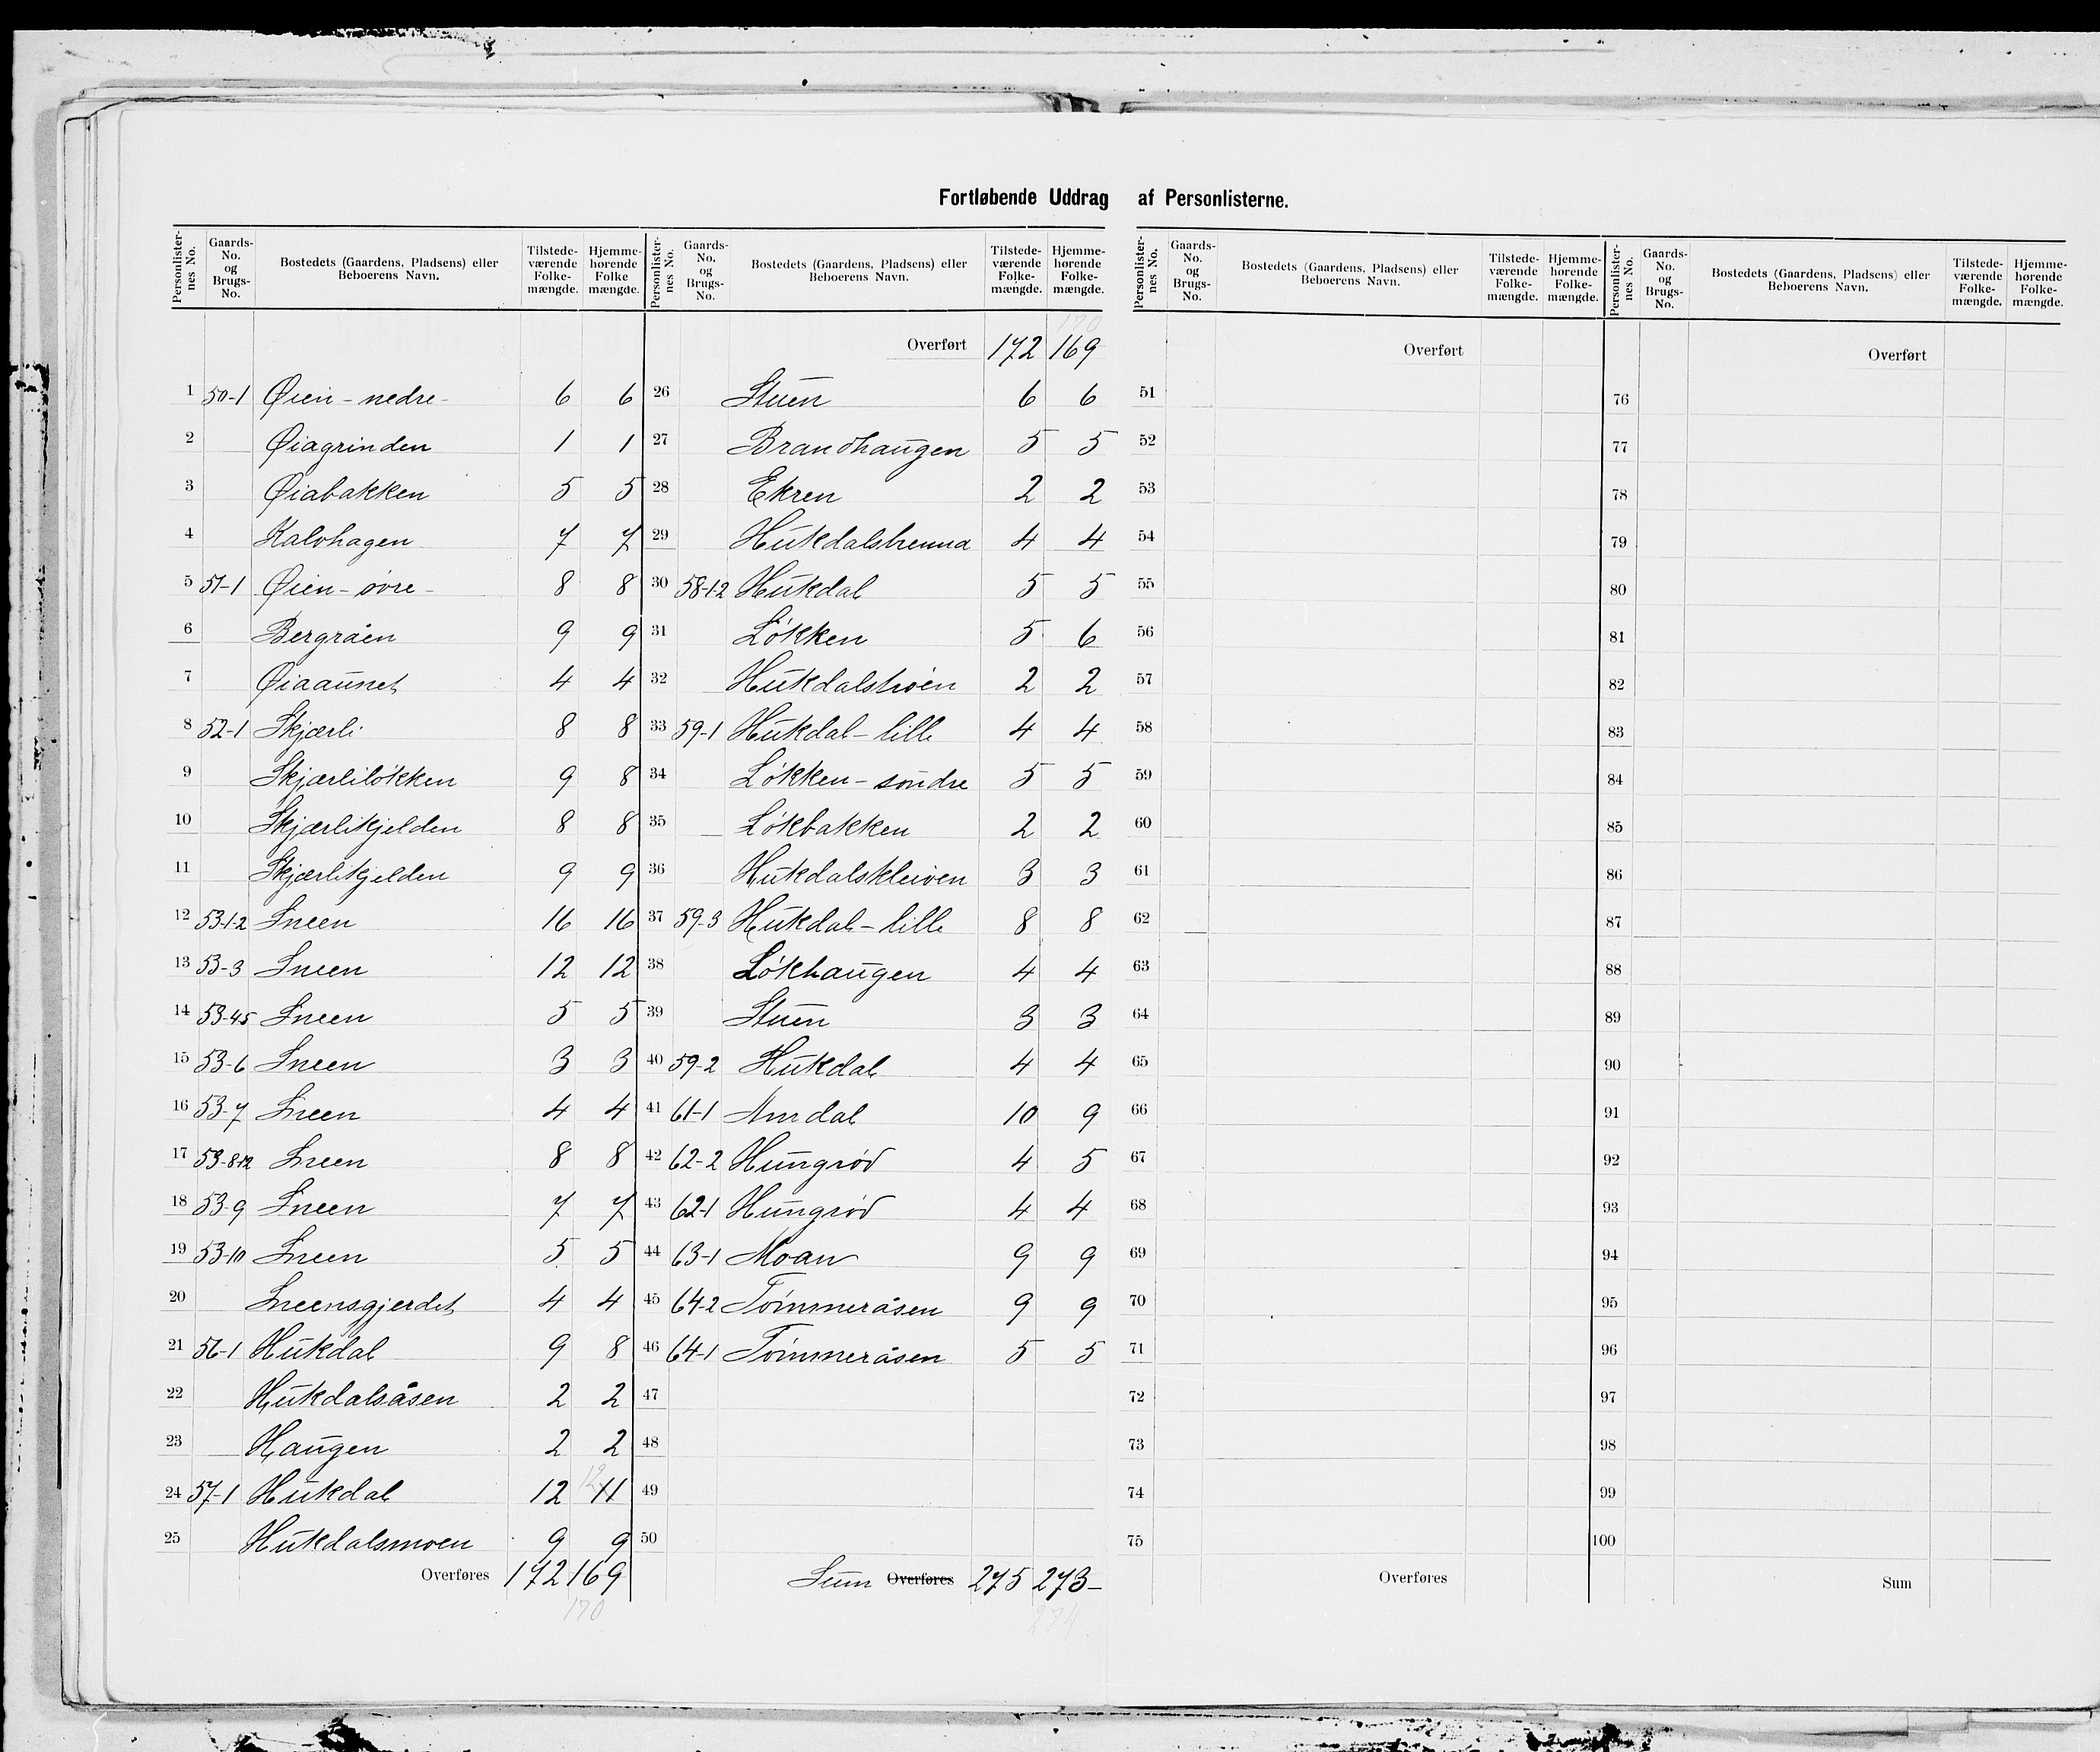 Fortløbende Uddrag af Personlisterne.
Personlisternes No. | Gaards-No. og Brugs-No. | Bostedets (Gaardens, Pladsens) eller Beboerens Navn. | Tilstedeværende Folkemængde. | Hjemmehørende Folkemængde.
1 50-1 Øien - nedre - 6 6
2 Øiagrinden 1 1
3 Øiabakken 5 5
4 Kalvhagen 7 7
5 51-1 Øien - övre - 8 8
6 Bergråen 9 9
7 Øiaaunet 4 4
8 52-1 Skjærli 8 8
9 Skjærliløkken 9 8
10 Skjærlikjelden 8 8
11 Skjærlikjelden 9 9
12 53-1-2 Sneen 16 16
13 53-3 Sneen 12 12
14 53-45 Sneen 5 5
15 53-6 Sneen 3 3
16 53-7 Sneen 4 4
17 53-8-12 Sneen 8 8
18 53-9 Sneen 7 7
19 53-10 Sneen 5 5
20 Sneensgjerdet 4 4
21 56-1 Hukdal 9 8
22 Hukdalsåsen 2 2
23 Haugen 2 2
24 57-1 Hukdal 12 12 11
25 Hukdalsmoen 9 9
Overføres 172 169
170
Personlisternes No. | Gaards-No. og Brugs-No. | Bostedets (Gaardens, Pladsens) eller Beboerens Navn. | Tilstedeværende Folkemængde. | Hjemmehørende Folkemængde.
170
Overført 172 169
26 Stuen 6 6
27 Brandhaugen 5 5
28 Ekren 2 2
29 4 4
30 58-1-2 Hukdal 5 5
31 Løkken 5 6
32 Hukdalstrøen 2 2
33 59-1 Hukdal - lille 4 4
34 Løkken - søndre 5 5
35 Løkbakken 2 2
36 Hukdalskleiven 3 3
37 59-3 Hukdal - lille 8 8
38 Løkhaugen 4 4
39 Stuen 3 3
40 59-2 Hukdal 4 4
41 61-1 Amdal 10 9
42 62-2 Hungrød 4 5
43 62-1 Hungrød 4 4
44 63-1 Moan 9 9
45 64-2 Tømmeråsen 9 9
46 64-1 Tømmeråsen 5 5
47
48
49
50
Sum Overføres 275 273-
274.
Personlisternes No. | Gaards-No. og Brugs-No. | Bostedets (Gaardens, Pladsens) eller Beboerens Navn. | Tilstedeværende Folkemængde. | Hjemmehørende Folkemængde.
Overført
51
52
53
54
55
56
57
58
59
60
61
62
63
64
65
66
67
68
69
70
71
72
73
74
75
Overføres
Personlisternes No. | Gaards-No. og Brugs-No. | Bostedets (Gaardens, Pladsens) eller Beboerens Navn. | Tilstedeværende Folkemængde. | Hjemmehørende Folkemængde.
Overført
76
77
78
79
80
81
82
83
84
85
86
87
88
89
90
91
92
93
94
95
96
97
98
99
100
Sum